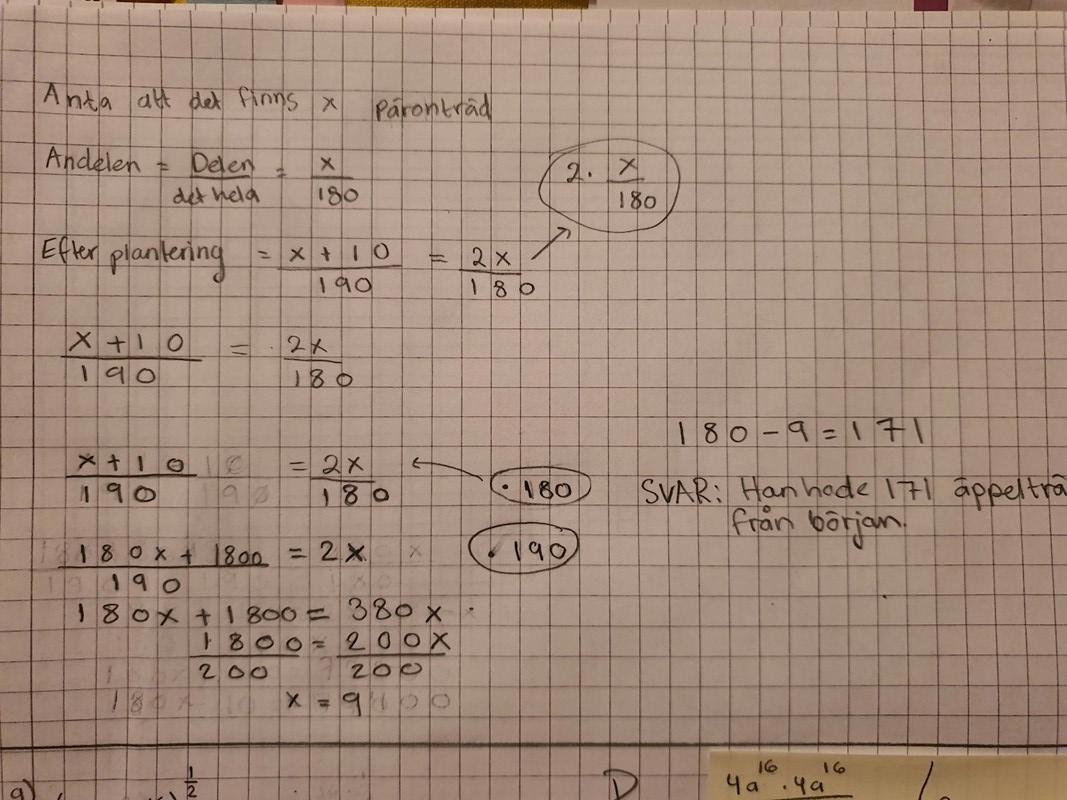 Anta att det finns x päronträd
Andelen = Delen/det hela = x/180
2. x/180
Efter plantering = x+10/190 = 2x/180
x+10/190 = 2x/180
x+10/190 = 2x/180
· 180
180x + 1800/190 = 2x
· 190
180x + 1800 = 380x
1800/200 = 200x/200
x = 9
180 - 9 = 171
SVAR: Han hade 171 äppelträ
från början.
1/2
D
4a^16 · 4a^16